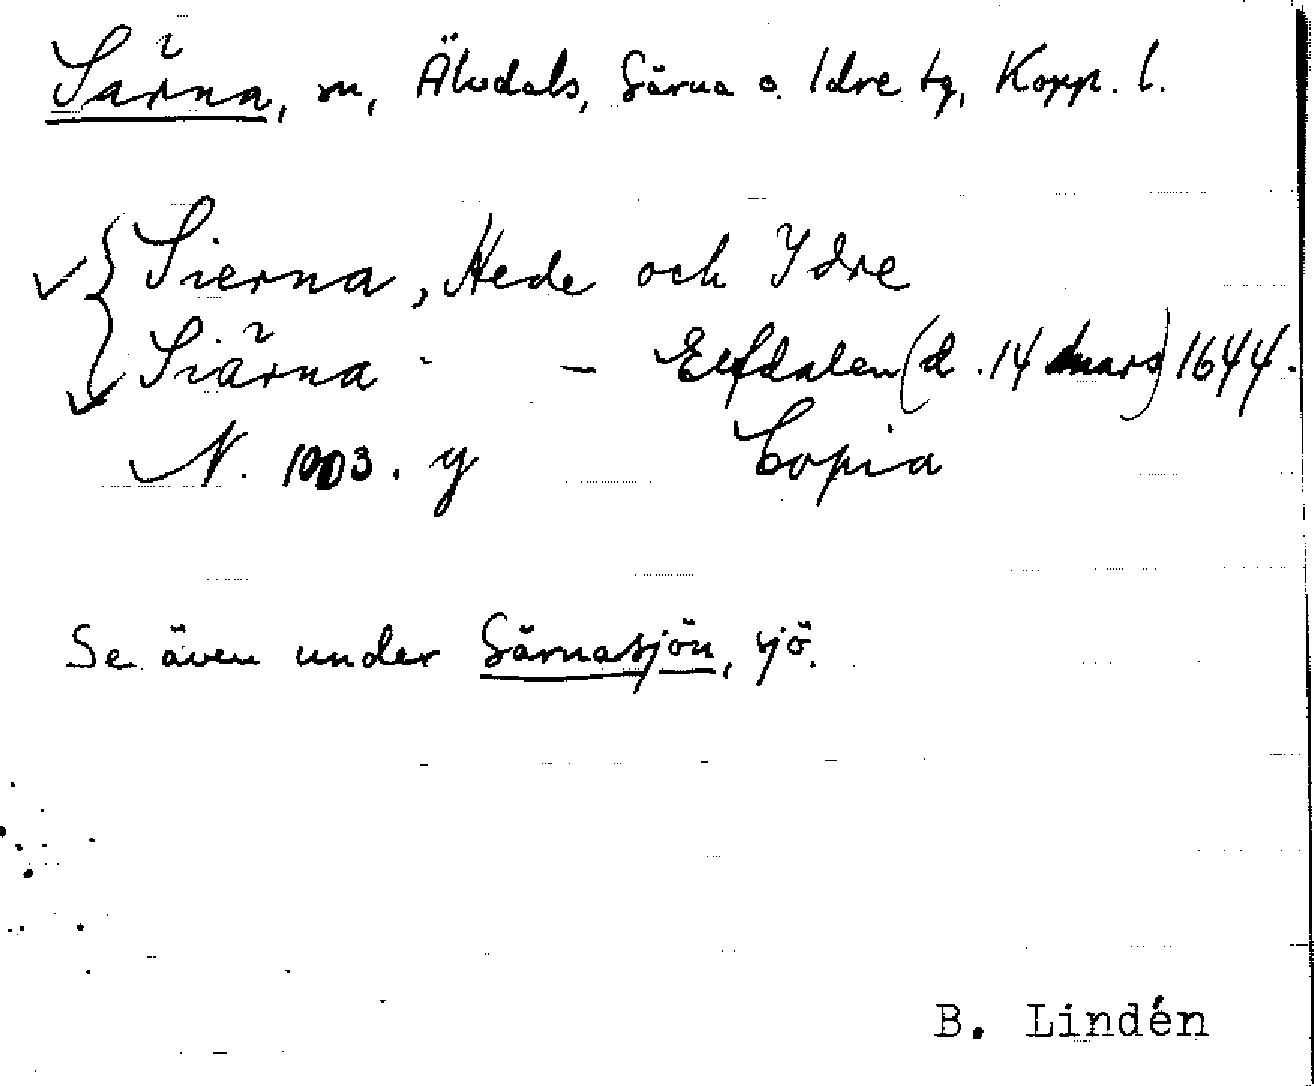 Särna, sn, Älvdals, Särna o. Idre tg, Kopp. l.
Sierna, Hede och Ydre
Siärna - - Elfdalen (d. 14 mars) 1644.
N. 1003. y Copia
Se även under Särnasjön, sjö.
B. Lindén